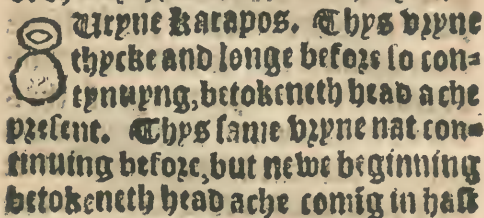 8 Uryne Karapos. Thys vryne
thycke and longe before so con=
tynuyng, betokeneth head ache
present. Thys same vryne nat con=
tinuing before, but newe beginning
betokeneth head ache comig in hast